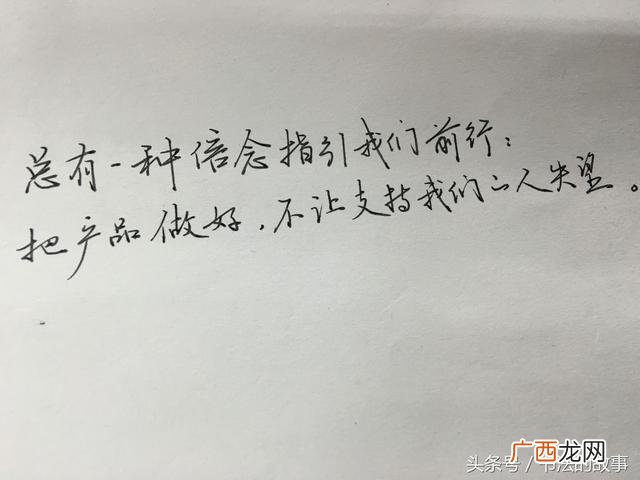 总有一种信念指引我们前行：
把产品做好，不让支持我们的人失望。
广西龙网
头条号／书法的故事